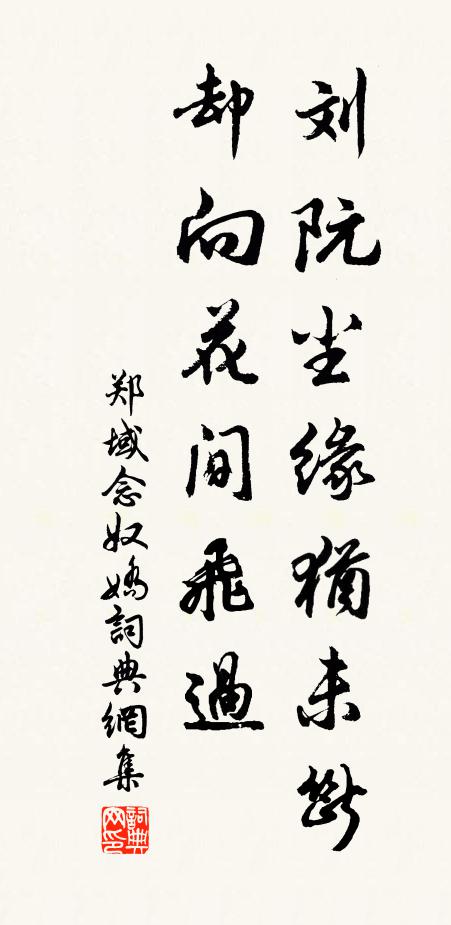 刘阮尘缘犹未断
却向花间飞过
郑域念奴娇词典網集
詞典网印